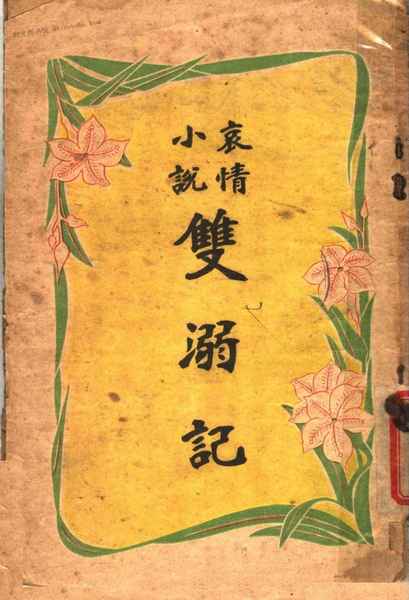 哀情
小說
雙溺記